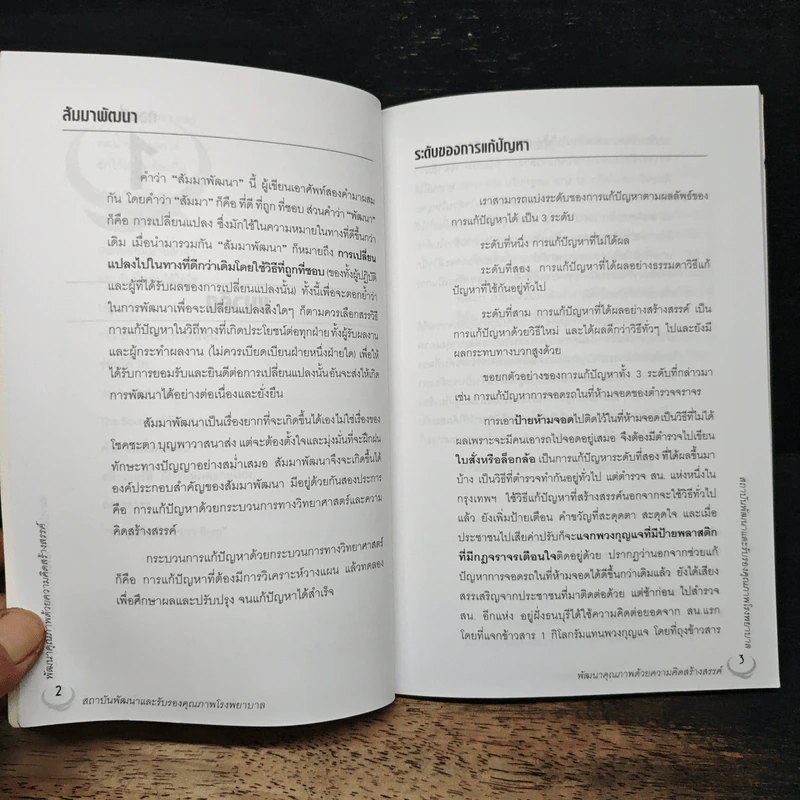 สัมมาพัฒนา
คำว่า "สัมมาพัฒนา" นี้ ผู้เขียนเอาศัพท์สองคำมาผสม
กัน โดยคำว่า "สัมมา" ก็คือ ที่ดี ที่ถูก ที่ชอบ ส่วนคำว่า "พัฒนา"
ก็คือ การเปลี่ยนแปลง ซึ่งมักใช้ในความหมายในทางที่ดีขึ้นกว่า
เดิม เมื่อนำมารวมกัน "สัมมาพัฒนา" ก็หมายถึง การเปลี่ยน
แปลงไปในทางที่ดีกว่าเดิมโดยใช้วิธีที่ถูกที่ชอบ (ของทั้งผู้ปฏิบัติ
และผู้ที่ได้รับผลของการเปลี่ยนแปลงนั้น) ทั้งนี้เพื่อจะตอกย้ำว่า
ในการพัฒนาเพื่อจะเปลี่ยนแปลงสิ่งใดๆ ก็ตามควรเลือกสรรวิธี
การแก้ปัญหาในวิถีทางที่เกิดประโยชน์ต่อทุกฝ่าย ทั้งผู้รับผลงาน
และผู้กระทำผลงาน (ไม่ควรเบียดเบียนฝ่ายหนึ่งฝ่ายใด) เพื่อให้
ได้รับการยอมรับและยินดีต่อการเปลี่ยนแปลงนั้น อันจะส่งให้เกิด
การพัฒนาได้อย่างต่อเนื่องและยั่งยืน
สัมมาพัฒนาเป็นเรื่องยากที่จะเกิดขึ้นได้เองไม่ใช่เรื่องของ
โชคชะตา บุญพาวาสนาส่ง แต่จะต้องตั้งใจและมุ่งมั่นที่จะฝึกฝน
ทักษะทางปัญญาอย่างสม่ำเสมอ สัมมาพัฒนาจึงจะเกิดขึ้นได้
องค์ประกอบสำคัญของสัมมาพัฒนา มีอยู่ด้วยกันสองประการ
คือ การแก้ปัญหาด้วยกระบวนการทางวิทยาศาสตร์และความ
คิดสร้างสรรค์
กระบวนการแก้ปัญหาด้วยกระบวนการทางวิทยาศาสตร์
ก็คือ การแก้ปัญหาที่ต้องมีการวิเคราะห์วางแผน แล้วทดลอง
เพื่อศึกษาผลและปรับปรุง จนแก้ปัญหาได้สำเร็จ
พัฒนาคุณภาพด้วยความคิดสร้างสรรค์
2
สถาบันพัฒนาและรับรองคุณภาพโรงพยาบาล
ระดับของการแก้ปัญหา
เราสามารถแบ่งระดับของการแก้ปัญหาตามผลลัพธ์ของ
การแก้ปัญหาได้ เป็น 3 ระดับ
ระดับที่หนึ่ง การแก้ปัญหาที่ไม่ได้ผล
ระดับที่สอง การแก้ปัญหาที่ได้ผลอย่างธรรมดาวิธีแก้
ปัญหาที่ใช้กันอยู่ทั่วไป
ระดับที่สาม การแก้ปัญหาที่ได้ผลอย่างสร้างสรรค์ เป็น
การแก้ปัญหาด้วยวิธีใหม่ และได้ผลดีกว่าวิธีทั่วๆ ไปและยังมี
ผลกระทบทางบวกสูงด้วย
ขอยกตัวอย่างของการแก้ปัญหาทั้ง 3 ระดับที่กล่าวมา
เช่น การแก้ปัญหาการจอดรถในที่ห้ามจอดของตำรวจจราจร
การเอาป้ายห้ามจอดไปติดไว้ในที่ห้ามจอดเป็นวิธีที่ไม่ได้
ผลเพราะจะมีคนเอารถไปจอดอยู่เสมอ จึงต้องมีตำรวจไปเขียน
ใบสั่งหรือล็อกล้อ เป็นการแก้ปัญหาระดับที่สอง ที่ได้ผลขึ้นมา
บ้าง เป็นวิธีที่ตำรวจทำกันอยู่ทั่วไป แต่ตำรวจ สน. แห่งหนึ่งใน
กรุงเทพฯ ใช้วิธีแก้ปัญหาที่สร้างสรรค์นอกจากจะใช้วิธีทั่วไป
แล้ว ยังเพิ่มป้ายเตือน คำขวัญที่สะดุดตา สะดุดใจ และเมื่อ
ประชาชนไปเสียค่าปรับก็จะแจกพวงกุญแจที่มีป้ายพลาสติก
ที่มีกฎจราจรเตือนใจติดอยู่ด้วย ปรากฏว่านอกจากช่วยแก้
ปัญหาการจอดรถในที่ห้ามจอดได้ดีขึ้นกว่าเดิมแล้ว ยังได้เสียง
สรรเสริญจากประชาชนที่มาติดต่อด้วย แต่ช้าก่อน ไปสำรวจ
สน. อีกแห่ง อยู่ฝั่งธนบุรีได้ใช้ความคิดต่อยอดจาก สน.แรก
โดยที่แจกข้าวสาร 1 กิโลกรัมแทนพวงกุญแจ โดยที่ถุงข้าวสาร
สถาบันพัฒนาและรับรองคุณภาพโรงพยาบาล
3
พัฒนาคุณภาพด้วยความคิดสร้างสรรค์